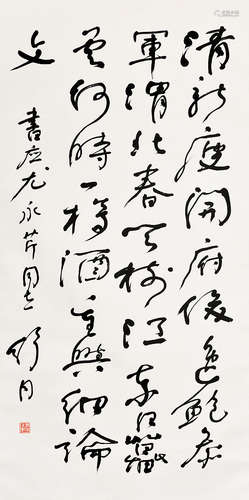 清新庾開府俊逸鮑參
軍渭北春天樹江東日暮
雲何時一樽酒重與細論
文
書应尤永芹同志 舒同